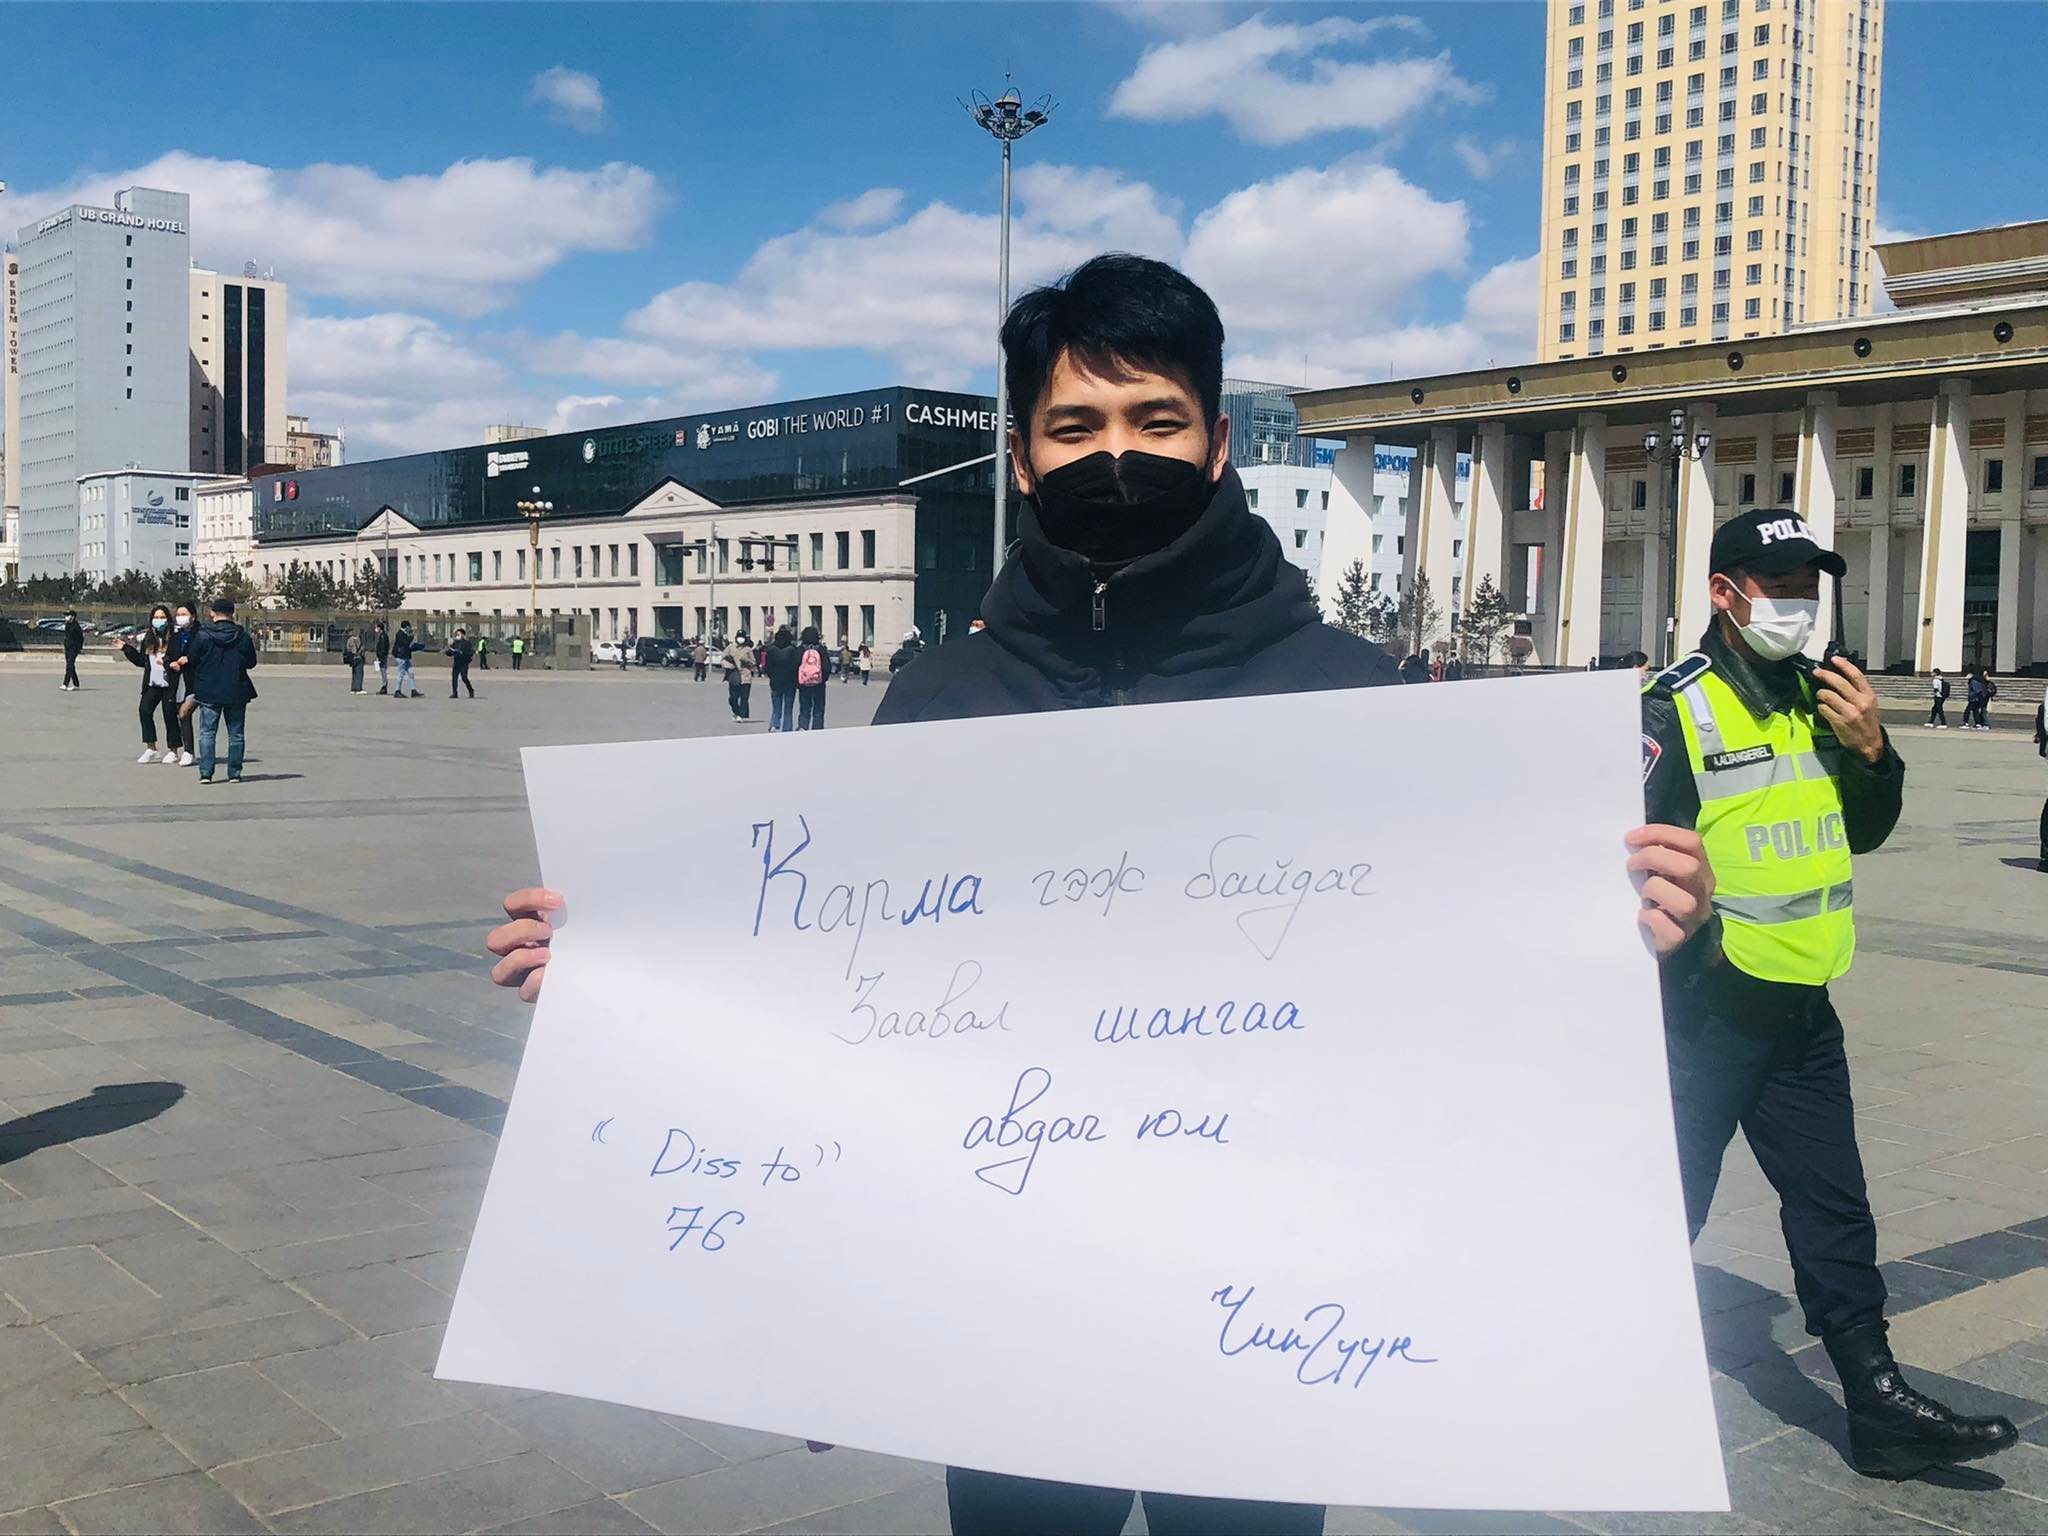 UB GRAND HOTEL
ERDEM TOWER
LITTLE SHEEP
YAMÁ
GOBI THE WORLD #1
CASHMERE
POLICE
A.ALTANGEREL
POLICE
Карма гэж байдаг
Заавал шангаа
авдаг юм
“Diss to”
76
Чингүүн